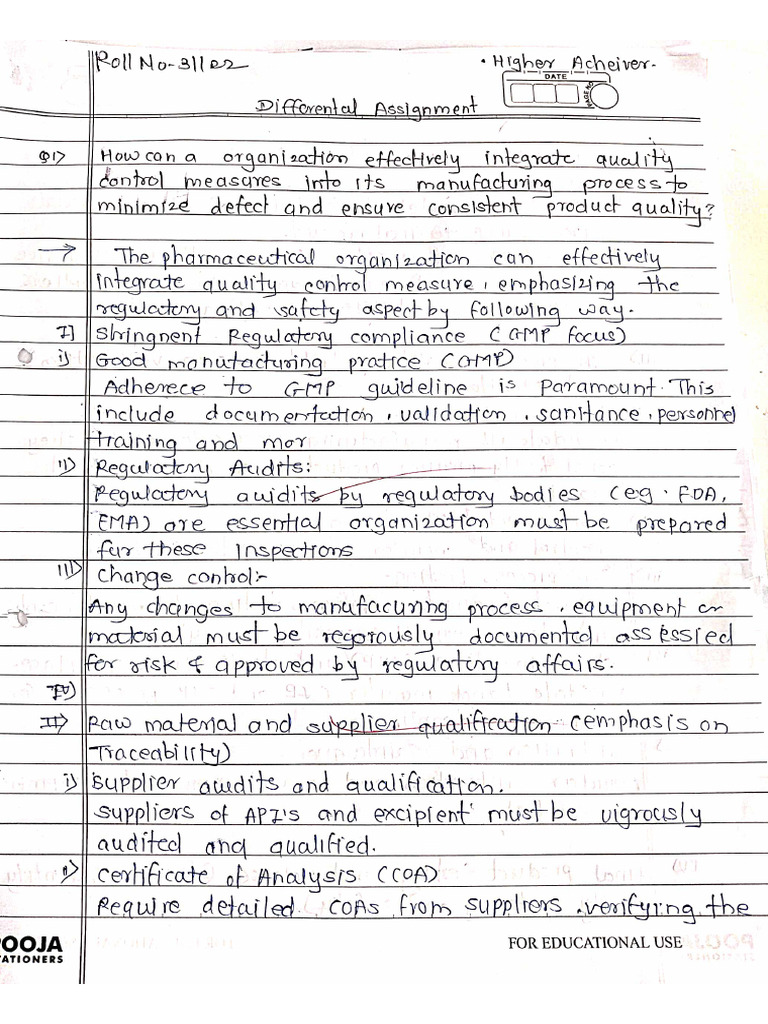 Roll No-31122
• Higher Acheiver.
DATE
Differental Assignment
Q1) How can a organization effectively integrate quality
control measures into its manufacturing process to
minimize defect and ensure consistent product quality?
→ The pharmaceutical organization can effectively
integrate quality control measure, emphasizing the
regulatory and safety aspect by following way.
I] Stringnent Regulatory compliance (GMP focus)
i) Good manutacturing pratice (GMP)
Adherece to GMP guideline is paramount. This
include documentation, validation, sanitance, personnel
training and mor
ii) Regulatory Audits:
Regulatory auidits by regulatory bodies (eg. FDA,
EMA) are essential organization must be prepared
for these Inspections
III) Change control:-
Any changes to manufacuring process, equipment or
material must be regorously documented assessied
for risk & approved by regulatory affairs.
IV)
II) Raw material and supplier qualification (emphasis on
Traceability)
i) Supplier audits and qualification.
Suppliers of API's and excipient must be vigrously
audited and qualified.
ii) Certificate of Analysis (COA)
Require detailed COAs from suppliers, verifying the
POOJA
STATIONERS
FOR EDUCATIONAL USE